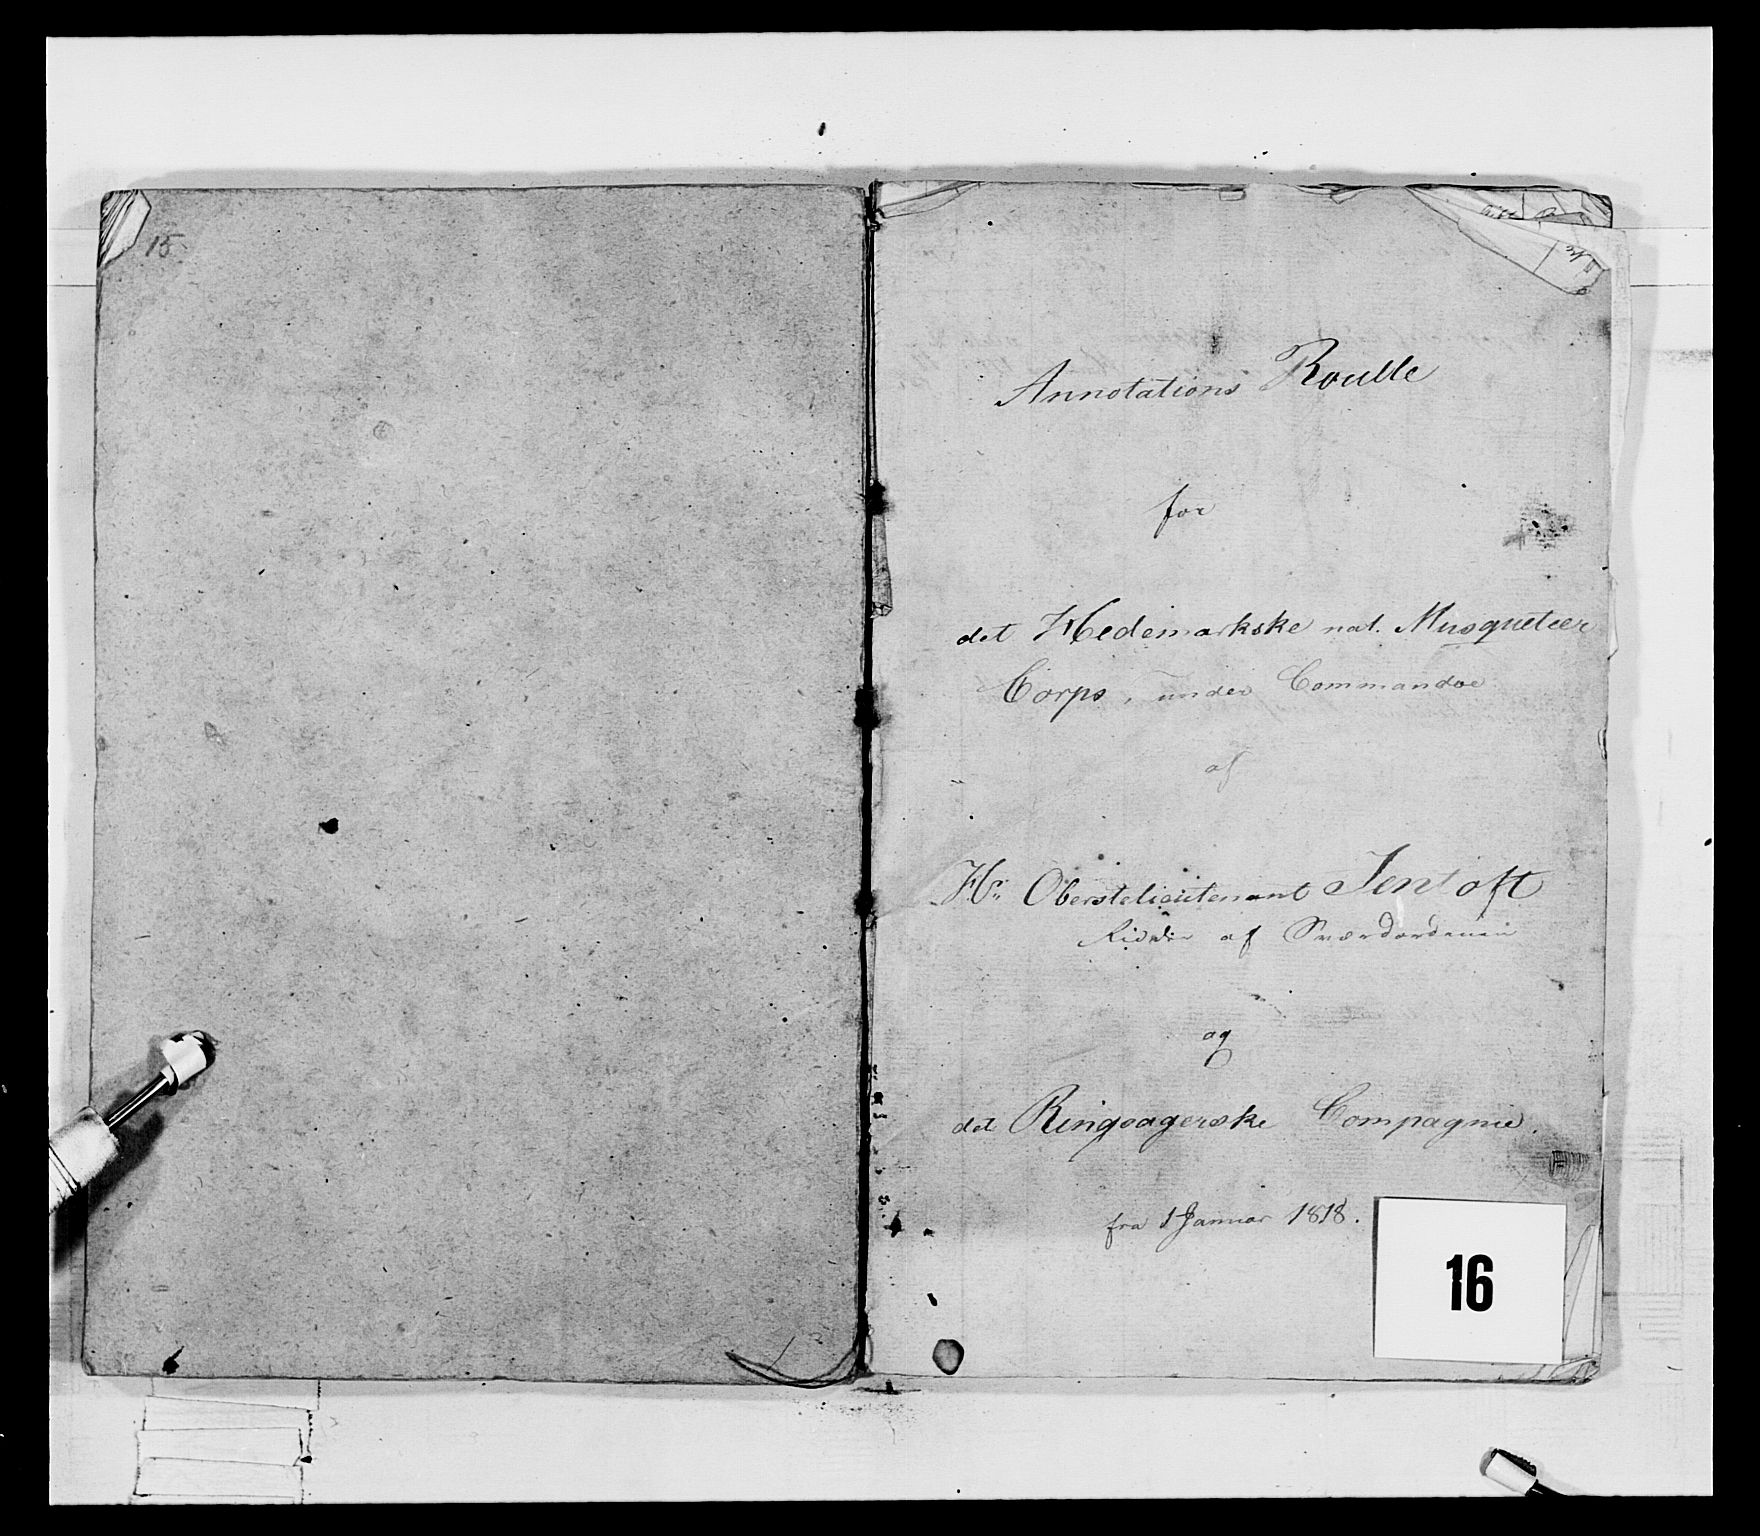 15
Annotations Roulle
for
det Hedemarkske nat. Musqueteer
Corps, under Commandoe
af
Hr. Oberstelieutenant Jentoft
Ridder af Sværdordenen
og
det Ringsagerske Compagnie.
fra 1 Januar 1818.
16